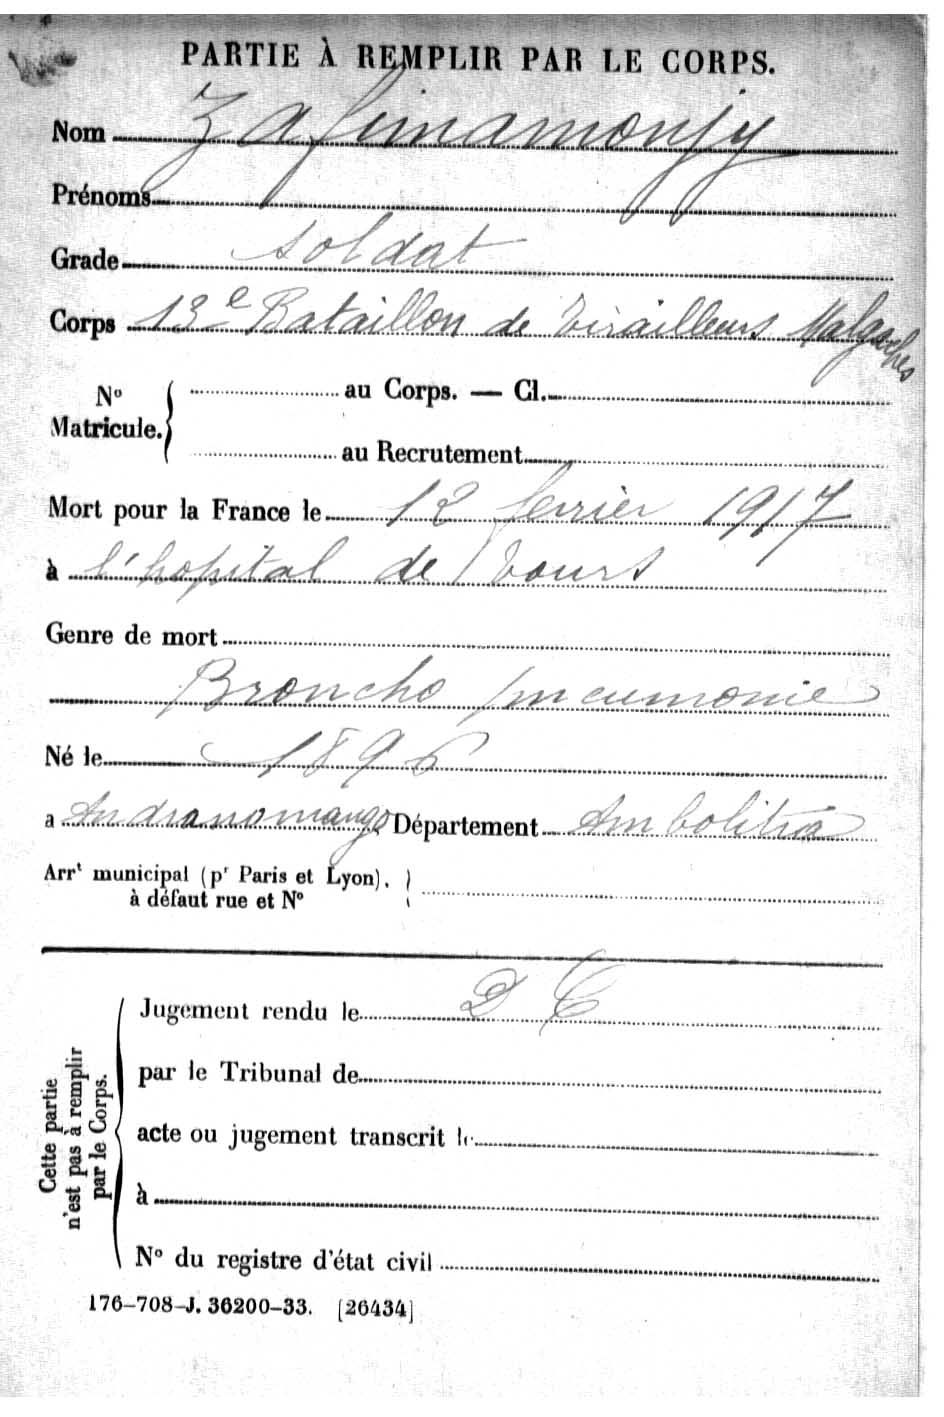 PARTIE À REMPLIR PAR LE CORPS.
Nom Zafimamonjy
Prénoms
Grade soldat
Corps 13e Bataillon de Tirailleurs Malgaches
No Matricule. au Corps. — Cl.
au Recrutement
Mort pour la France le 12 fevrier 1917
à l'hopital de Tours
Genre de mort
Broncho pneumonie
Né le 1896
a Andranomango Département Ambolitra
Arrt municipal (pr Paris et Lyon),
à défaut rue et No
Cette partie
n'est pas à remplir
par le Corps.
Jugement rendu le D C
par le Tribunal de
acte ou jugement transcrit le
à
No du registre d'état civil
176-708-J. 36200-33. [26434]